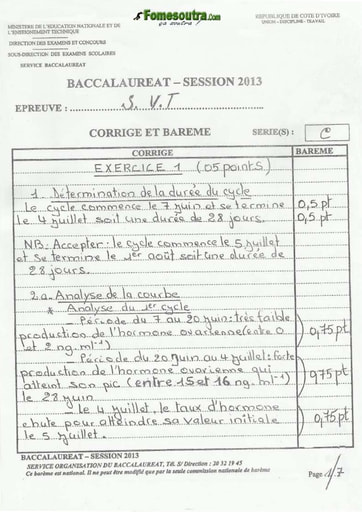 Fomesoutra.com
ça soutra !
MINISTERE DE L'EDUCATION NATIONALE ET DE
L'ENSEIGNEMENT TECHNIQUE
DIRECTION DES EXAMENS ET CONCOURS
SOUS-DIRECTION DES EXAMENS SCOLAIRES
SERVICE BACCALAUREAT
REPUBLIQUE DE COTE D'IVOIRE
UNION - DISCIPLINE - TRAVAIL
BACCALAUREAT – SESSION 2013
EPREUVE : S.V.T
CORRIGE ET BAREME SERIE(S) : C
CORRIGE BAREME
EXERCICE 1 (05 points)
1. Détermination de la durée du cycle
Le cycle commence le 7 juin et se termine 0,5 pt
le 4 juillet soit une durée de 28 jours. 0,5 pt
NB: Accepter: le cycle commence le 5 juillet
et se termine le 1er août soit une durée de
28 jours.
2.a. Analyse de la courbe
* Analyse du 1er cycle
- Période du 7 au 20 juin: très faible
production de l'hormone ovarienne (entre 0 0,75 pt
et 2 ng.ml-1)
- Période du 20 juin au 4 juillet: forte
production de l'hormone ovarienne qui 0,75 pt
atteint son pic (entre 15 et 16 ng.ml-1)
le 28 juin
- Le 4 juillet, le taux d'hormone 0,75 pt
chute pour atteindre sa valeur initiale
le 5 juillet.
BACCALAUREAT – SESSION 2013
SERVICE ORGANISATION DU BACCALAUREAT, Tél. S/ Direction : 20 32 19 45
Ce barème est national. Il ne peut être modifié que par la seule commission nationale de barème
Page 1/7